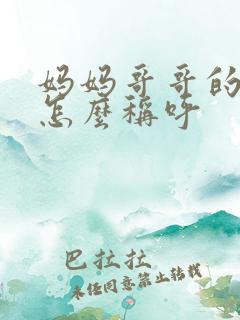 妈妈哥哥的
怎麼稱呼
巴拉拉
未经同意禁止转载